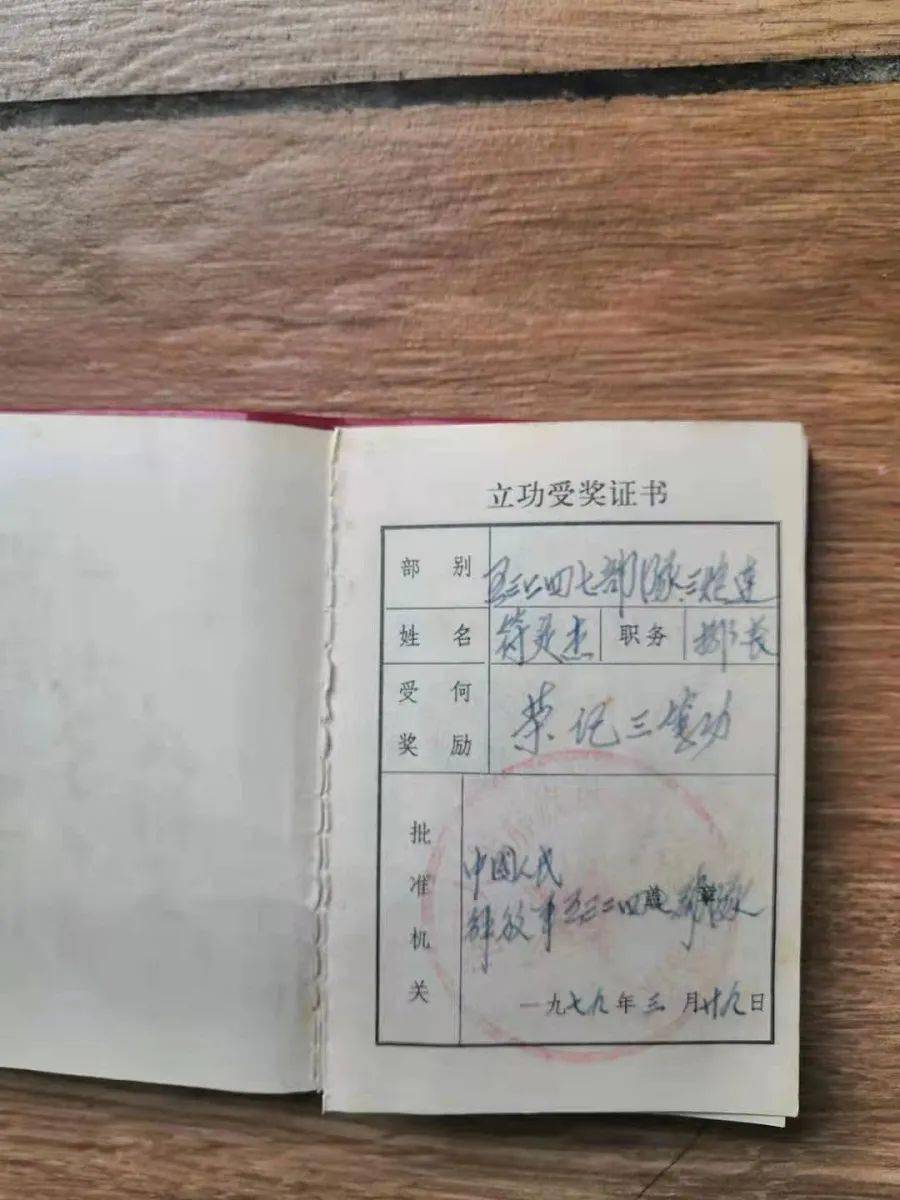 立功受奖证书
部别 五三二四七部队三炮连
姓名 符 杰 职务 部长
受何奖励 荣记三等功
批准机关 中國人民
解放军五三二四 部队
一九七九年三月廿九日